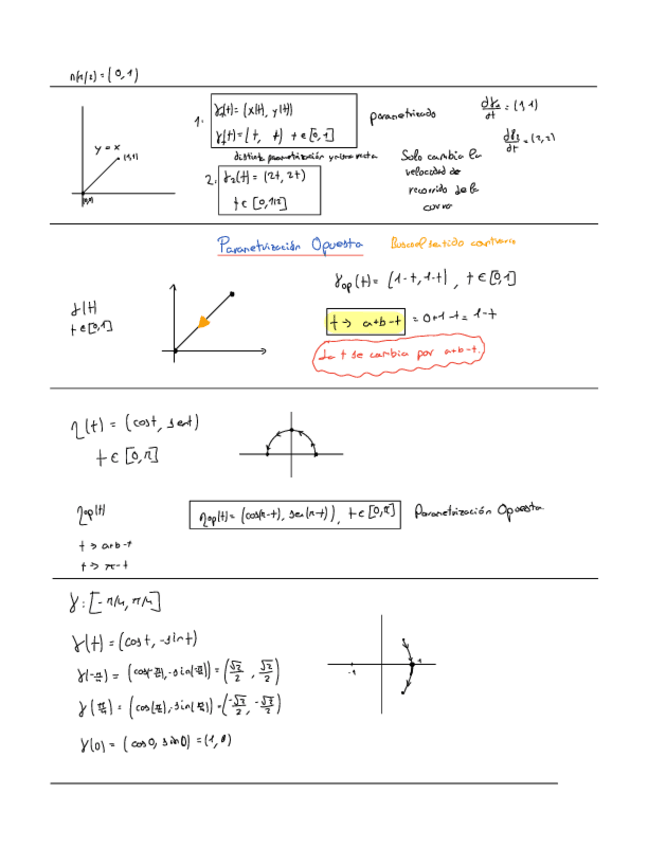 η(π/2) = (0, 1)
y = x
(1,1)
(0,0)
1. γ₁(t) = (x(t), y(t))
γ₁(t) = (t, t) t ∈ [0,1]
parametrizado
distinta parametrización y misma recta
2. γ₂(t) = (2t, 2t)
t ∈ [0, 1/2]
Solo cambia la
velocidad de
recorrido de la
curva
= (1,1)
= (2,2)
Parametrización Opuesta
Busca el sentido contrario
γ(t)
t ∈ [0,1]
γop(t) = (1-t, 1-t), t ∈ [0,1]
t → a+b-t = 0+1-t = 1-t
La t se cambia por a+b-t.
η(t) = (cost, sent)
t ∈ [0,π]
ηop(t)
ηop(t) = (cos(π-t), sen(π-t)), t ∈ [0,π]
Parametrización Opuesta.
t → a+b-t
t → π-t
γ: [-π/4, π/4]
γ(t) = (cost, -sint)
γ(-π/4) = (cos(-π/4), -sin(-π/4)) = (√2/2, √2/2)
γ(π/4) = (cos(π/4), -sin(π/4)) = (-√2/2, -√2/2)
γ(0) = (cos0, sin0) = (1, 0)
-1
1